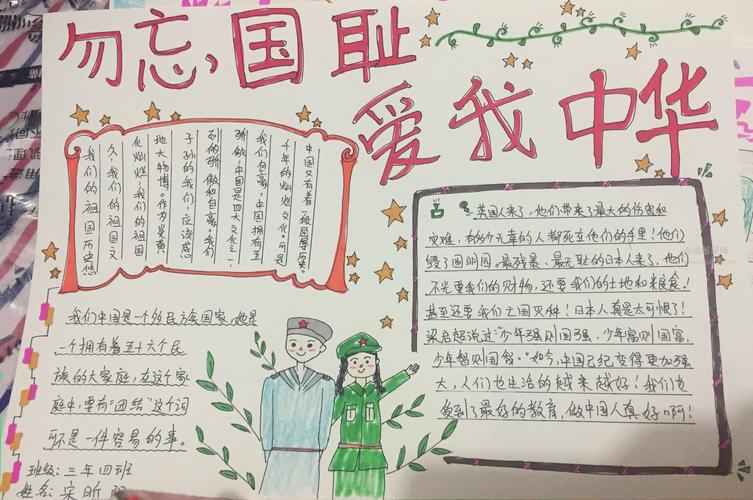 勿忘,国耻
爱我中华
我们的祖国历史悠
久,我们的祖国文
化灿烂,我们的祖国
地大物博。作为炎黄
子孙的我们,应该感
到骄傲和自豪。我们
骄傲,中国是四大文化之一,
我们自豪,中国拥有五
千年的灿烂文化。可是
中国又有着一段屈辱历史。
英国人来了,他们带来了最大的伤害和
灾难,有的少无辜的人都死在他们的手里!他们
毁了圆明园。最残暴、最无耻的日本人来了,他们
不光要我们的财物,还要我们的土地和粮食!
甚至还要我们亡国灭种!日本人真是太可恨了!
梁启超说过:"少年强则国强,少年富则国富,
少年智则国智。"如今,中国已经变得更加强
大,人们也生活的越来越好!我们也
受到了最好的教育,做中国人真好啊!
我们中国是一个多民族国家,她是
一个拥有着五十六个民
族的大家庭,在这个家
庭中,要有"团结"这个词
可不是一件容易的事。
班级:三年四班
姓名:宋昕